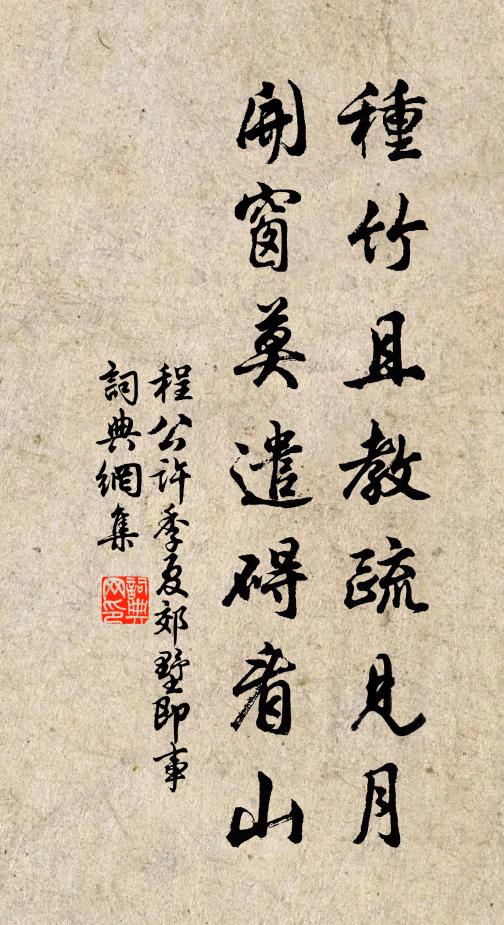 種竹且教疏見月
開窗莫遣碍看山
程公許季夏郊墅即事
詞典網集
詞典網印